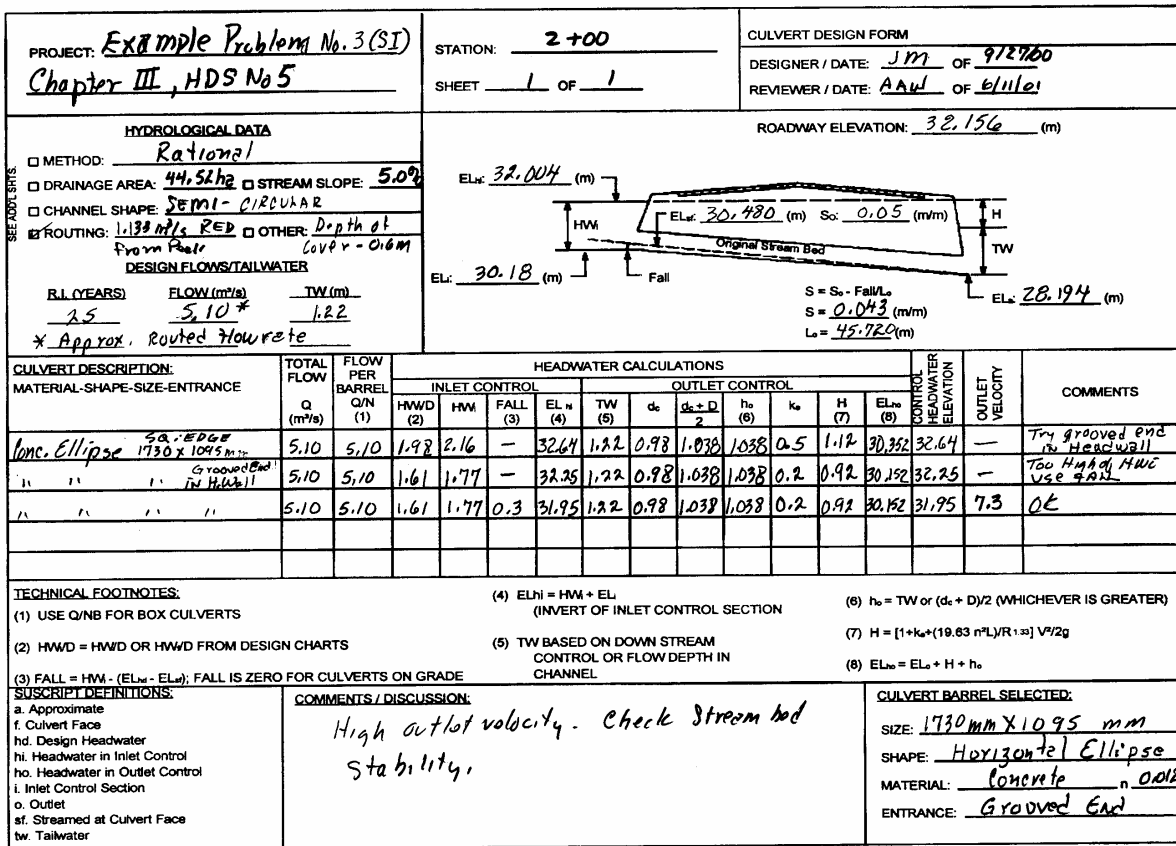 PROJECT: Example Problem No. 3 (SI)
Chapter III, HDS No 5
STATION: 2+00
SHEET 1 OF 1
CULVERT DESIGN FORM
DESIGNER / DATE: JM OF 9/27/00
REVIEWER / DATE: AAW OF 6/11/01
SEE ADD'L SHTS.
HYDROLOGICAL DATA
□ METHOD: Rational
□ DRAINAGE AREA: 44.52ha □ STREAM SLOPE: 5.0%
□ CHANNEL SHAPE: SEMI-CIRCULAR
☒ ROUTING: 1.133 m³/s RED □ OTHER: Depth of
from Peak Cover - 0.6m
DESIGN FLOWS/TAILWATER
R.I. (YEARS) FLOW (m³/s) TW (m)
25 5.10* 1.22
* Approx. Routed Flowrate
ROADWAY ELEVATION: 32.156 (m)
ELhd: 32.004 (m)
HWi
ELsf: 30.480 (m) So: 0.05 (m/m)
H
TW
Original Stream Bed
ELi: 30.18 (m)
Fall
S = So - Fall/La
S = 0.043 (m/m)
La = 45.720 (m)
ELo: 28.194 (m)
CULVERT DESCRIPTION:
MATERIAL-SHAPE-SIZE-ENTRANCE
TOTAL FLOW Q (m³/s)
FLOW PER BARREL Q/N (1)
HEADWATER CALCULATIONS
INLET CONTROL OUTLET CONTROL
HWi/D (2) HWi FALL (3) ELhi (4) TW (5) dc dc + D / 2 ho (6) ke H (7) ELho (8)
CONTROL HEADWATER ELEVATION
OUTLET VELOCITY
COMMENTS
Conc. Ellipse SQ. EDGE 1730 x 1095 mm 5.10 5.10 1.98 2.16 — 32.64 1.22 0.98 1.038 1.038 0.5 1.12 30.352 32.64 — Try grooved end in Headwall
" " " Grooved End in H.Wall 5.10 5.10 1.61 1.77 — 32.25 1.22 0.98 1.038 1.038 0.2 0.92 30.152 32.25 — Too High of HWi USE FALL
" " " " 5.10 5.10 1.61 1.77 0.3 31.95 1.22 0.98 1.038 1.038 0.2 0.92 30.152 31.95 7.3 OK
TECHNICAL FOOTNOTES:
(1) USE Q/NB FOR BOX CULVERTS
(2) HWi/D = HW/D OR HWi/D FROM DESIGN CHARTS
(3) FALL = HWi - (ELhd - ELsf); FALL IS ZERO FOR CULVERTS ON GRADE
(4) ELhi = HWi + ELi
(INVERT OF INLET CONTROL SECTION
(5) TW BASED ON DOWN STREAM
CONTROL OR FLOW DEPTH IN
CHANNEL
(6) ho = TW or (dc + D)/2 (WHICHEVER IS GREATER)
(7) H = [1+ke+(19.63 n²L)/R1.33] V²/2g
(8) ELho = ELo + H + ho
SUSCRIPT DEFINITIONS:
a. Approximate
f. Culvert Face
hd. Design Headwater
hi. Headwater in Inlet Control
ho. Headwater in Outlet Control
i. Inlet Control Section
o. Outlet
sf. Streamed at Culvert Face
tw. Tailwater
COMMENTS / DISCUSSION:
High outlet velocity. Check Stream bed
stability.
CULVERT BARREL SELECTED:
SIZE: 1730mm X 1095 mm
SHAPE: Horizontal Ellipse
MATERIAL: Concrete n 0.012
ENTRANCE: Grooved End